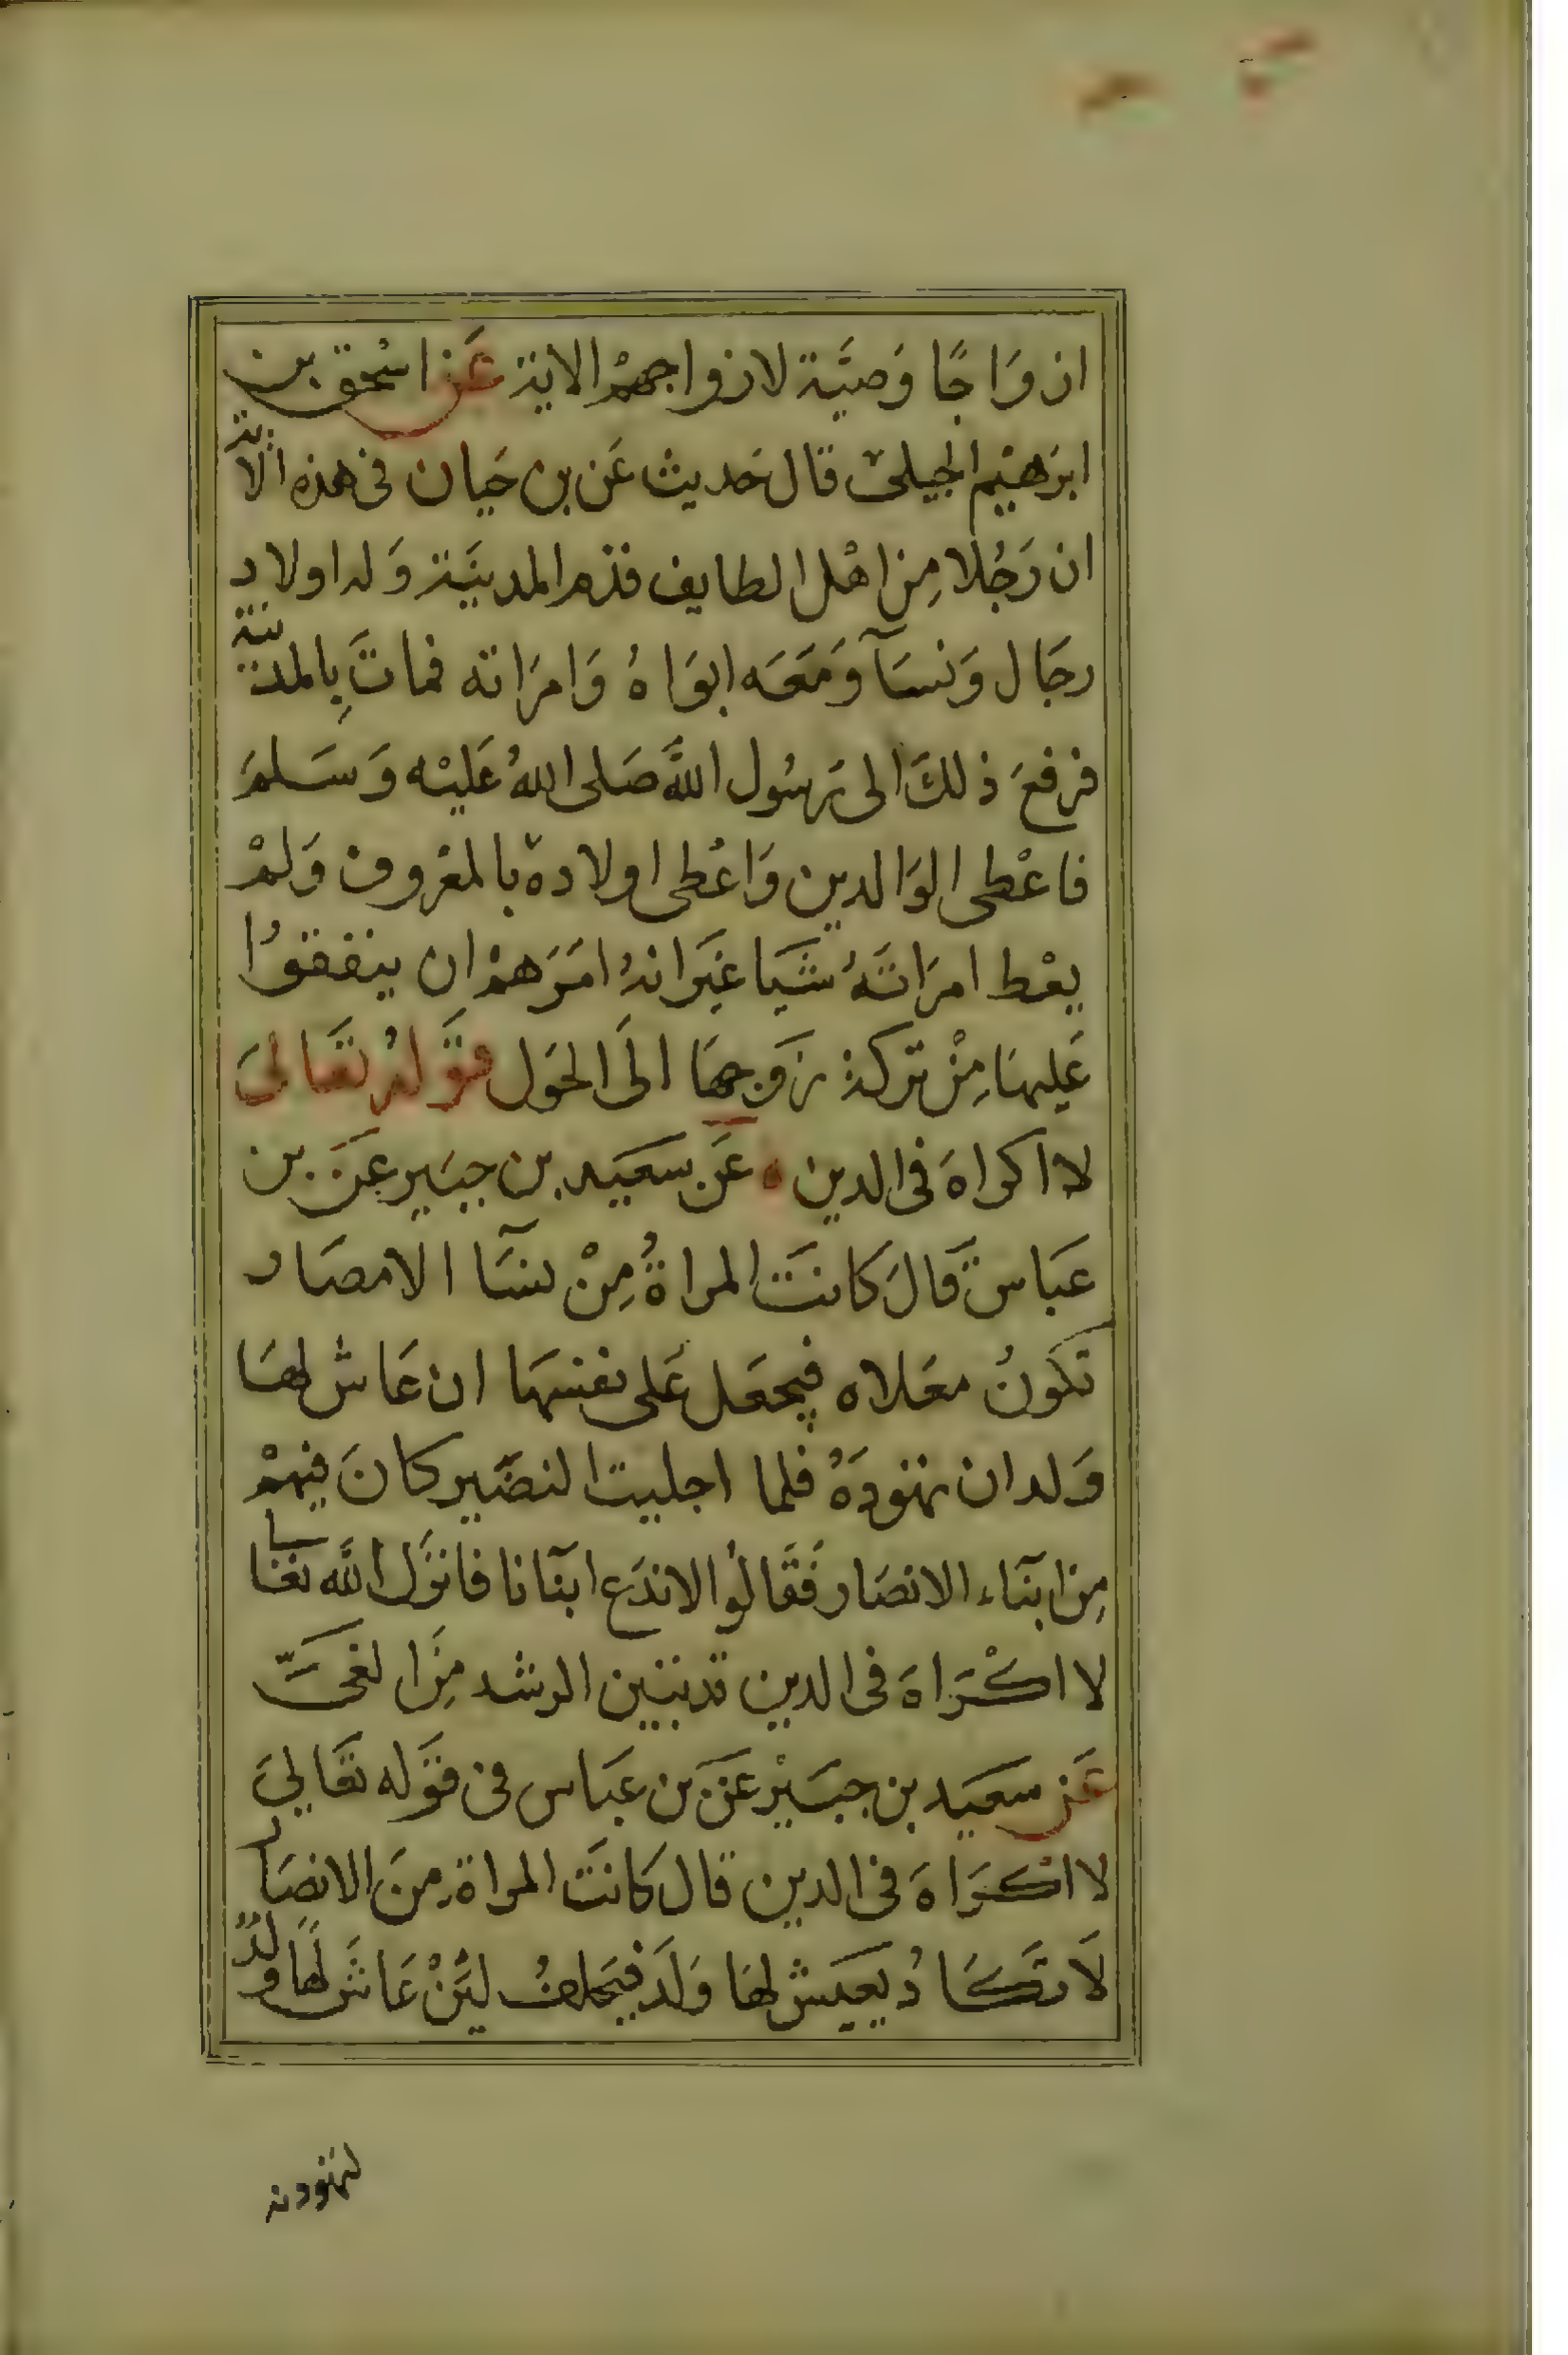 ازوَاجًا وَصيَّة لازواجهمْ الاية عَن اسْحق بن
ابرَهيْم الجيلى قال حَديث عَن بن حَيان فى هذه الاية
ان رَجُلا مِن اهْل الطايف قدم المدينَة وَله اولاد
رجَال وَنسَآ وَمَعَه ابوَاهُ وَامرَاته فماتَ بِالمدينة
فرفعَ ذلكَ الى رسُول اللَّه صَلى اللهُ عَليْه وَسَلمَ
فاعْطى الوَالدين وَاعْطى اولاده بالمعْروف وَلمْ
يعْط امرَاتَهُ شَيا غيَر انهُ امَرَهمْ ان ينفقوُا
عَليهَا مِنْ تركة زوجهَا الَى الحَول قوَلهُ تعَالىَ
لا اكراهَ فى الدين عَن سعيَد بن جبيَر عَن بن
عَباس قَالَ كانتَ المراةُ مِنْ نسَآ الامصَار
تكونُ معَلاه فيجعَل عَلى نفسهَا ان عَاش لهَا
وَلد ان تهودَهُ فلما اجليت النضَير كانَ فيهمْ
مِن ابنَآء الانصَار فَقَالوُا لا ندَع ابنَآنا فانزَل اللَّه تعَالى
لا اكْرَاهَ فى الدين قد تبَين الرشد مِنَ الغىَّ
عَن سعيَد بن جبَيْر عَن بن عَباس فى قوَله تعَالىَ
لا اكْرَاهَ فى الدين قال كَانتَ المراة مِنَ الانصَار
لَا تكَادُ يعيَش لهَا وَلَد فيَحلفُ ليَنْ عَاشَ لهَا وَلدٌ
لتهودنه